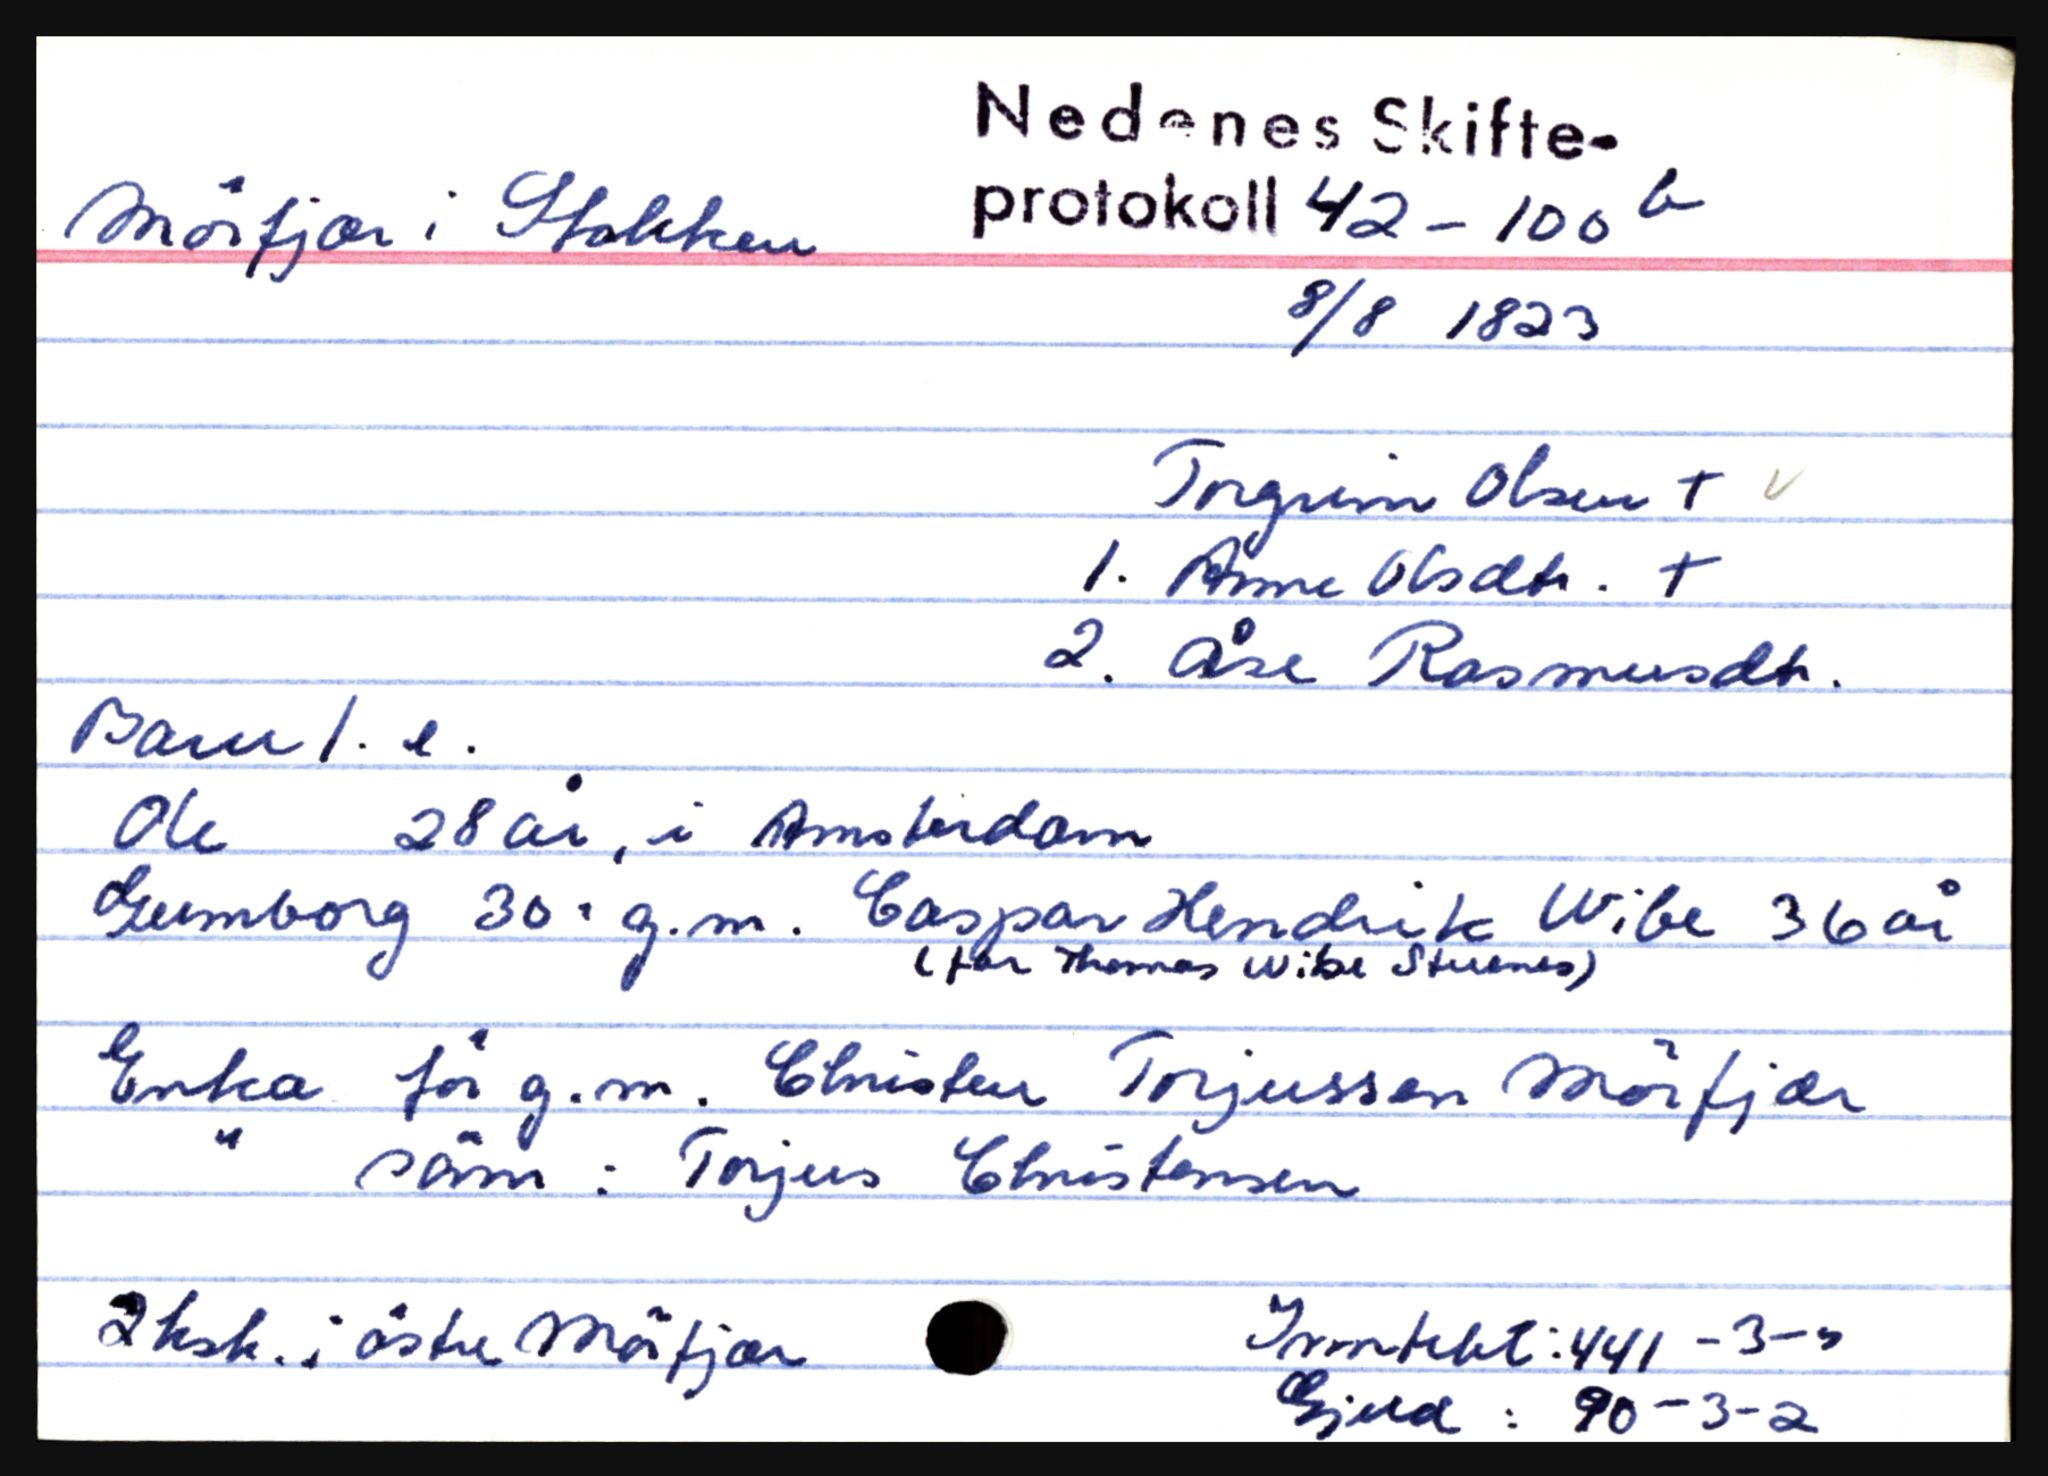 Nedenes Skifte-
Mörfjær i Stokken protokoll 42 - 100 b
8/8 1823
Torgrim Olsen + v
1. Anne Olsdtr. +
2. Åse Rasmusdtr.
Barn 1. e.
Ole 28 år, i Amsterdam
Gumborg 30 " g.m. Caspar Hendrik Wibe 36 år
(far Thomas Wibe Stuenes)
Enka för g.m. Christen Torjussen Mörfjær
" sönn : Torjus Christensen
2 hsk. i östre Mörfjær
Inntekt : 441 - 3 - "
Gjeld : 90 - 3 - 2